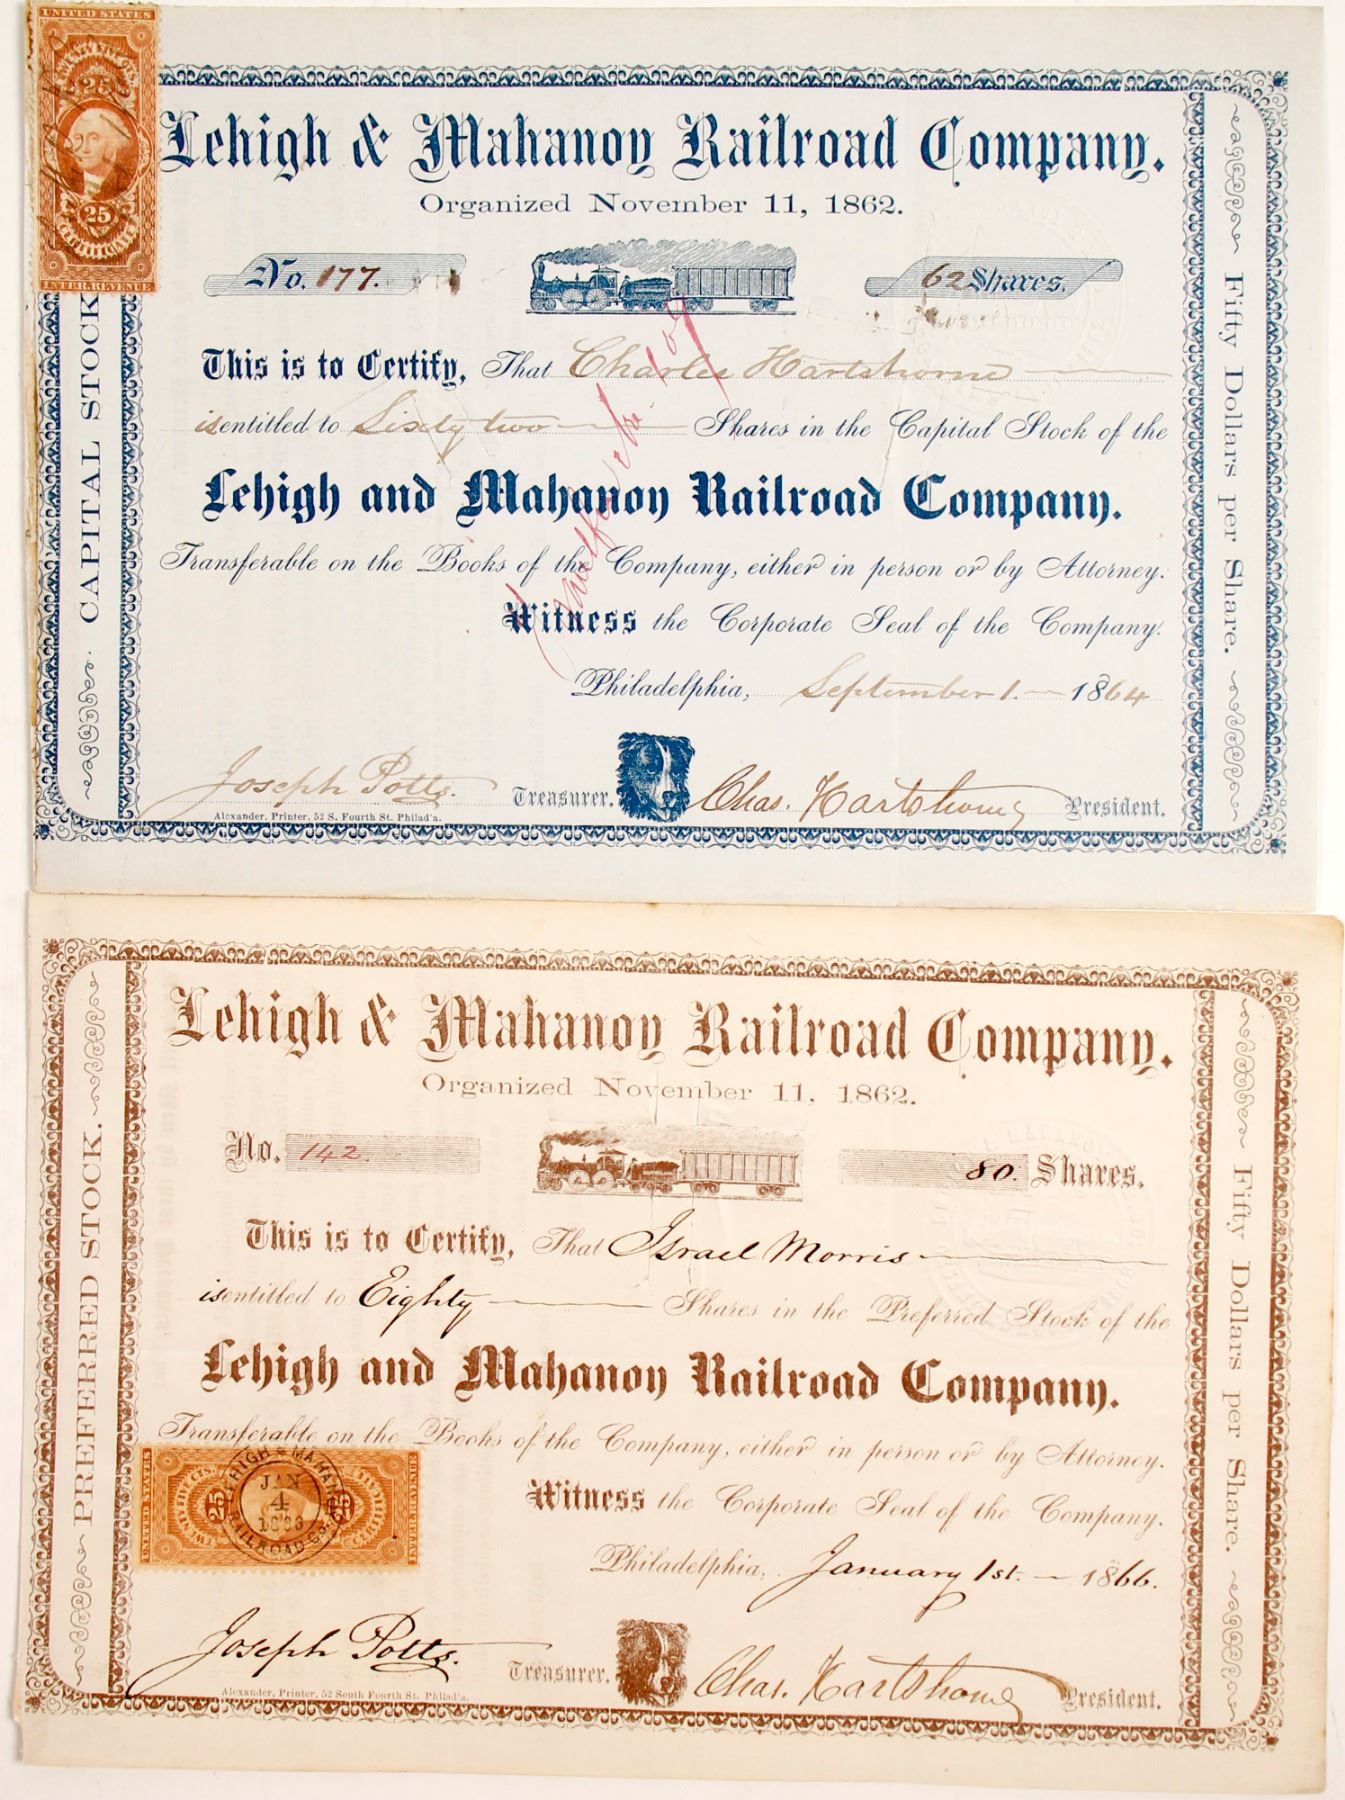 UNITED STATES
25
25
CERTIFICATE
INTER. REVENUE
Lehigh & Mahanoy Railroad Company.
Organized November 11, 1862.
No. 177.
62 Shares.
This is to Certify, That Charles Hartshorne
is entitled to Sixty two Shares in the Capital Stock of the
Lehigh and Mahanoy Railroad Company.
Transferable on the Books of the Company, either in person or by Attorney.
Witness the Corporate Seal of the Company.
Philadelphia, September 1. 1864
Joseph Potts. Treasurer. Chas. Hartshorne President.
Alexander, Printer, 52 S. Fourth St. Philad'a.
CAPITAL STOCK.
Fifty Dollars per Share.
Lehigh & Mahanoy Railroad Company.
Organized November 11, 1862.
No. 142.
80. Shares.
This is to Certify, That Israel Morris
is entitled to Eighty Shares in the Preferred Stock of the
Lehigh and Mahanoy Railroad Company.
Transferable on the Books of the Company, either in person or by Attorney.
Witness the Corporate Seal of the Company.
Philadelphia, January 1st. 1866.
UNITED STATES
25
25
INTER. REVENUE
LEHIGH & MAHANOY
JAN
4
RAILROAD CO.
Joseph Potts. Treasurer. Chas. Hartshorne President.
Alexander, Printer, 52 South Fourth St. Philad'a.
PREFERRED STOCK.
Fifty Dollars per Share.